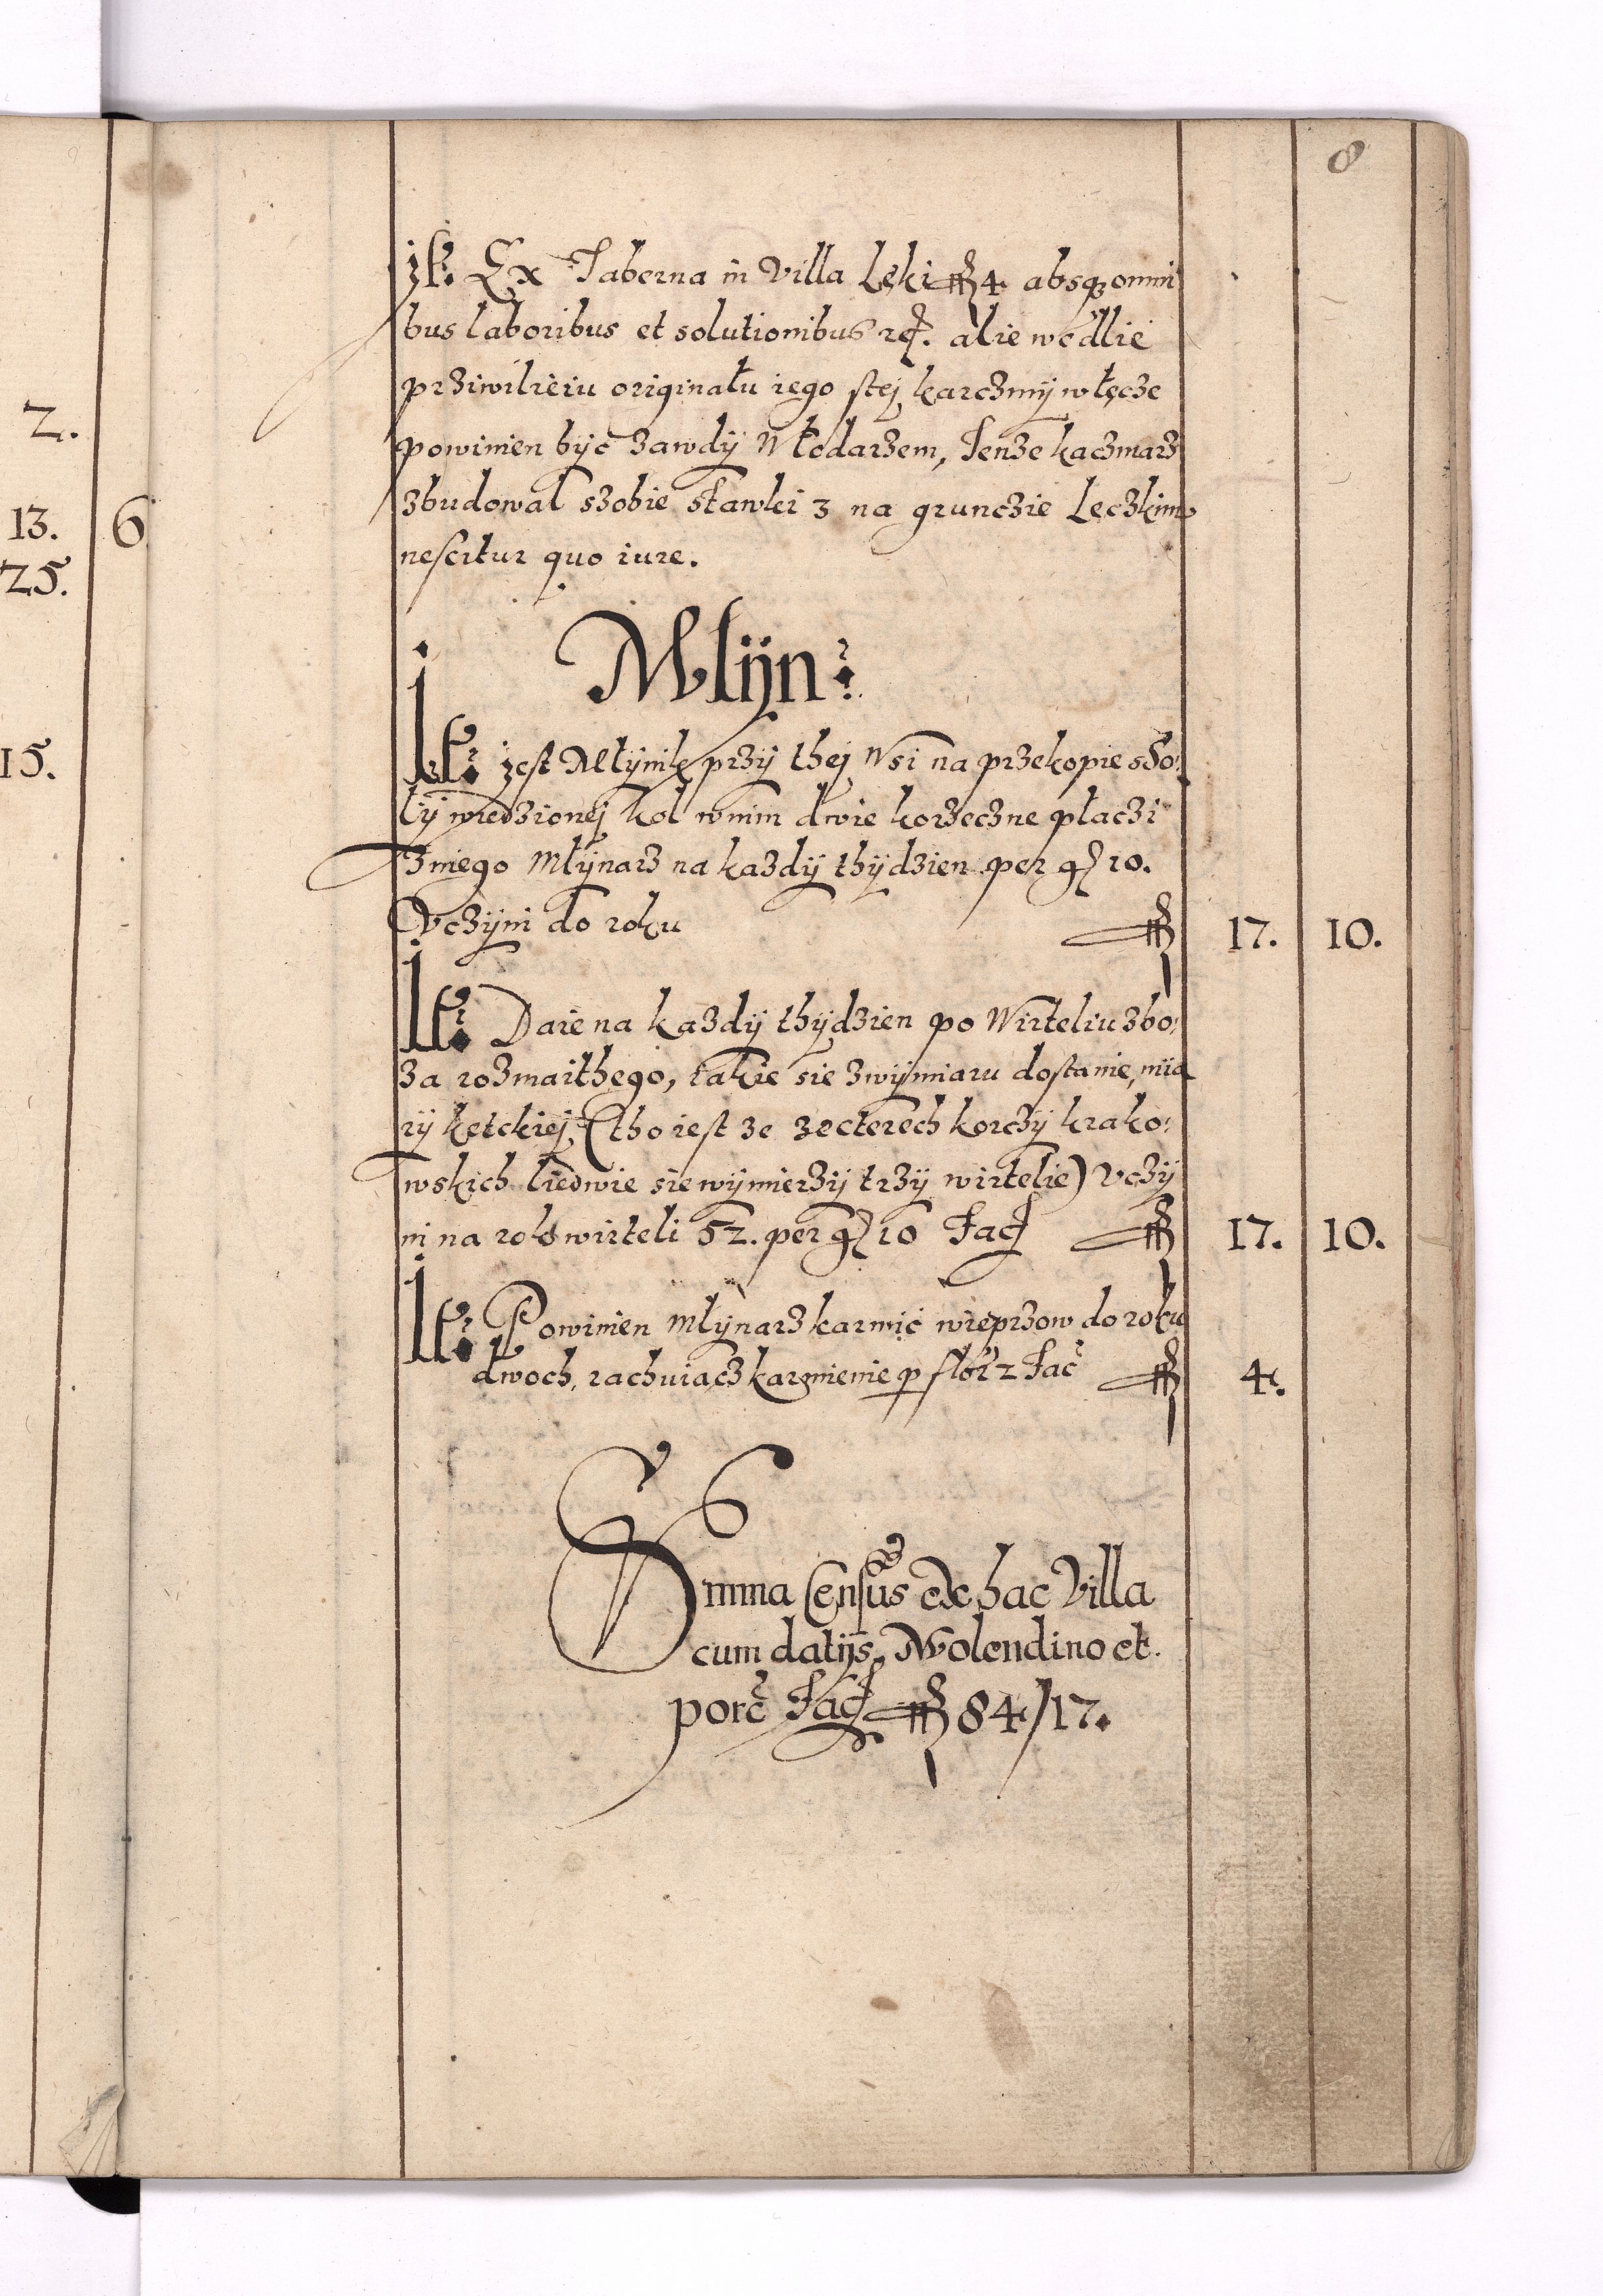 8
It. Ex Taberna in Villa Łęki ff 4 absq3 omni
bus laboribus et solutionibus rc. alie wedlie
prziwilieiu originału iego stej karczmÿ w łęcze
powinien być zawdÿ Włodarzem, Tenze kaczmarz
zbudował szobie stawki 3 na grunczie Łęczkim
nescitur quo iure.
Mlÿn
It. jest Młÿnik przÿ thej Wsi na przekopie s So:
łÿ wiedzionej Kol wnim dwie korzeczne płaczi
Zniego Młÿnarz na kazdÿ thÿdzien per g 10.
Vczÿni do roku ff 17. 10.
It. Daie na kazdÿ thÿdzien po Wirteliu zbo:
za rozmaithego, iakie sie zwÿmiaru dostanie, mia
rÿ kętckiej (tho iest ze zecterech korczÿ krako:
wskich liedwie sie wÿmierzÿ trzÿ wirtelie) Vczÿ
ni na rok wirteli 52. per g 10 Fac ff 17. 10.
It. Powinien Młÿnarz karmić wieprzow do roku
dwoch, rachuiącz karmienie p flor 2 Fac ff 4.
Summa Census ex hac Villa
cum datijs, Molendino et
porc Fac ff 84/17.
2.
13. 6
25.
15.